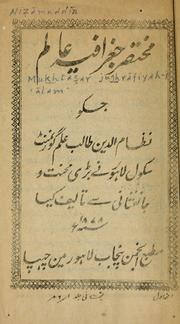 Nizāmuddīn
مختصر جغرافیہ عالم
Mukhtaṣar jughrāfiyah-i
ʻālam
جسکو
نظام الدین طالب علم گورنمنٹ
سکول لاہور نے بڑی محنت و
جانفشانی سے تالیف کیا
۱۸۷۸
مطبع انجمن پنجاب لاہور مین چھپا